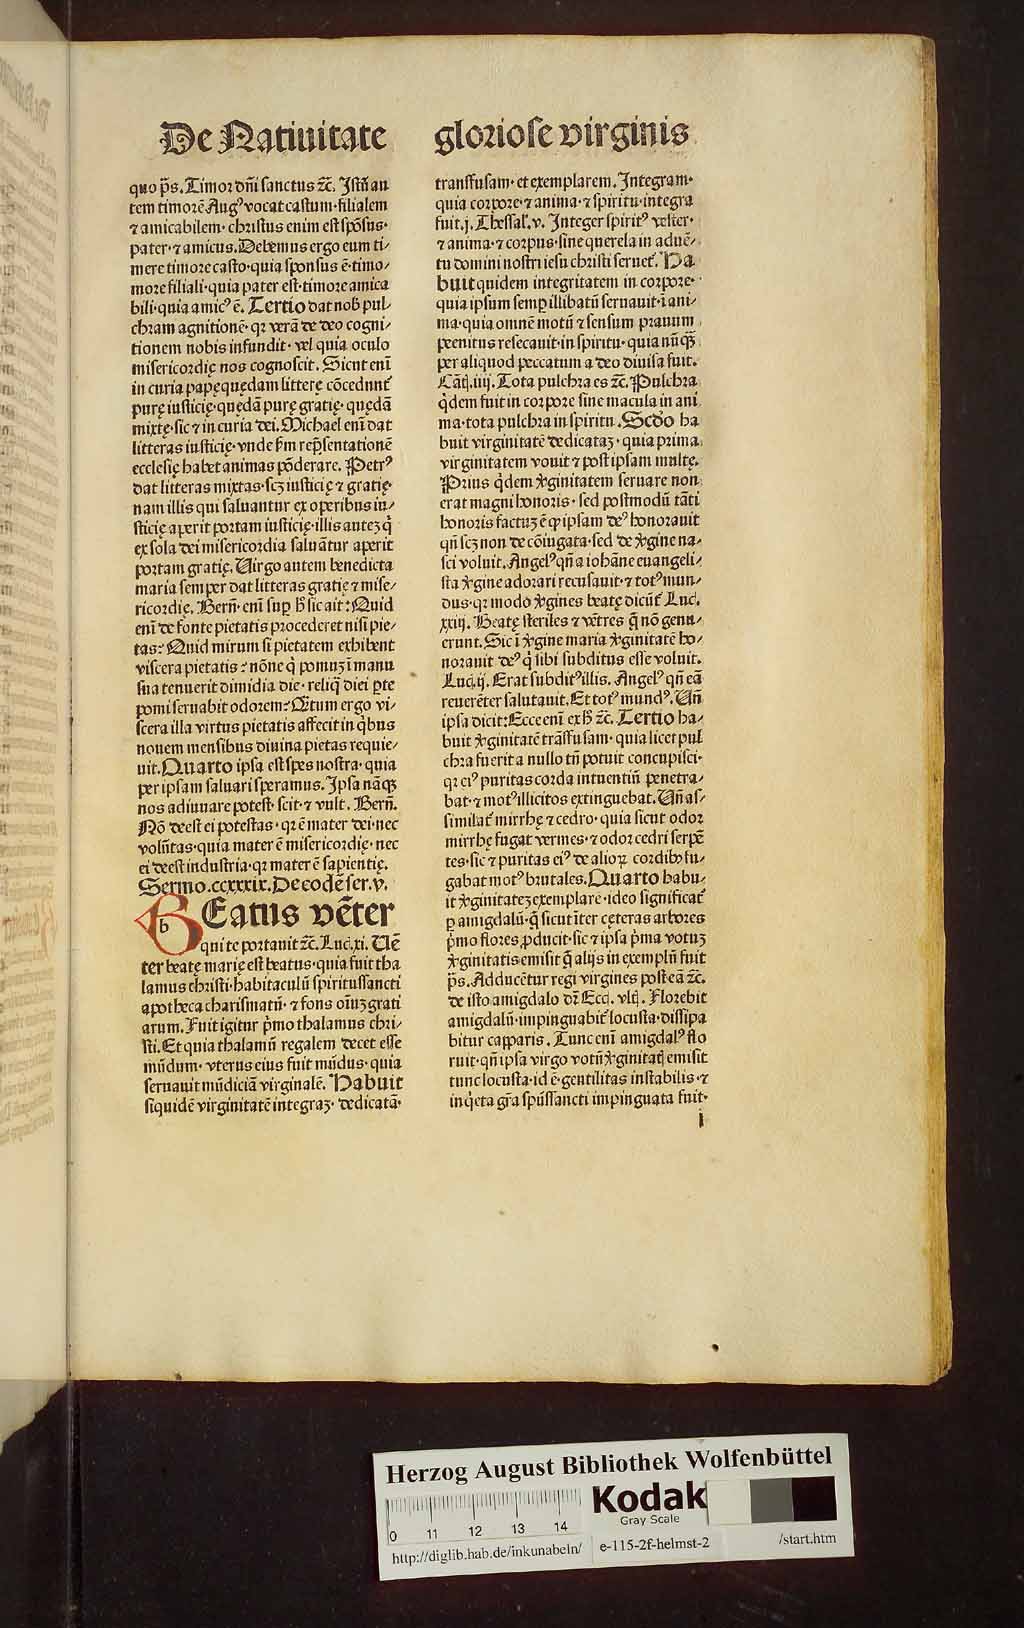 De Natiuitate
quo p̄s. Timor dn̄i sanctus ꝛc̄. Istū au
tem timorē Augꝰ vocat castum· filialem
⁊ amicabilem· christus enim est spōsus·
pater· ⁊ amicus. Debemus ergo eum ti⸗
mere timore casto· quia sponsus ē· timo⸗
more filiali· quia pater est· timore amica
bili· quia amicꝰ ē. Tertio dat nob̄ pul⸗
chram agnitionē· qꝛ verā de deo cogni⸗
tionem nobis infundit· vel quia oculo
misericordię nos cognoscit. Sicut enī
in curia papę quędam litterę cōcedunt̄
purę iusticię· quędā purę gratię· quędā
mixtę· sic ⁊ in curia dei. Michael enī dat
litteras iusticię· vnde ẜm rep̄sentationē
ecclesię habet animas pōderare. Petrꝰ
dat litteras mixtas· scꝫ iusticię ⁊ gratię·
nam illis qui saluantur ex operibus iu⸗
sticię aperit portam iusticię· illis auteꝫ q̇
ex sola dei misericordia saluātur aperit
portam gratię. Uirgo autem benedicta
maria semper dat litteras gratię ⁊ mise⸗
ricordię. Bern̄. enī suꝑ h̄ sic ait: Quid
enī de fonte pietatis procederet nisi pie⸗
tas: Quid mirum si pietatem exhibent
viscera pietatis: nōne q̇ pomuꝫ ī manu
sua tenuerit dimidia die· reliq̄ diei ꝑte
pomi seruabit odorem: Q̄tum ergo vi⸗
scera illa virtus pietatis affecit in q̇bus
nouem mensibus diuina pietas requie⸗
uit. Quarto ipsa est spes nostra· quia
per ipsam saluari speramus. Ipsa nāqꝫ
nos adiuuare potest· scit· ⁊ vult. Bern̄.
Nō deest ei potestas· qꝛ ē mater dei· nec
volūtas· quia mater ē misericordię· nec
ei deest industria· qꝛ mater ē sapientię.
Sermo.ccxxxix. De eodē ser.v.
b
BEatus vēter
qui te portauit ꝛc̄. Luc̄.xi. Uē
ter beatę marię est beatus· quia fuit tha
lamus christi· habitaculū spiritussancti
apotheca charismatū· ⁊ fons oīuꝫ grati
arum. Fuit igitur p̄mo thalamus chri⸗
sti. Et quia thalamū regalem decet esse
mūdum· vterus eius fuit mūdus· quia
seruauit mūdiciā virginalē. Habuit
siquidē virginitatē integraꝫ· dedicatā·
gloriose virginis
transfusam· et exemplarem. Integram·
quia corpore· ⁊ anima· ⁊ spiritu integra
fuit.j. Thessal̄. v. Integer spiritꝰ vester·
⁊ anima· ⁊ corpus· sine querela in aduē⸗
tu domini nostri iesu christi seruet̄. Ha
buit quidem integritatem in corpore·
quia ipsum semꝑ illibatū seruauit· ī ani⸗
ma· quia omnē motū ⁊ sensum prauum
peenitus resecauit· in spiritu· quia nūq̄ꝫ
per aliquod peccatum a deo diuisa fuit.
Cāt̄.iiij. Tota pulchra es ꝛc̄. Pulchra
q̇dem fuit in corpore sine macula in ani
ma· tota pulchra in spiritu. Scd̄o ha
buit virginitatē dedicataꝫ· quia prima
virginitatem vouit ⁊ post ipsam multę.
Prius q̇dem v̇ginitatem seruare non
erat magni honoris· sed postmodū tāti
honoris factuꝫ ē ꝙ ipsam deꝰ honorauit
qn̄ scꝫ non de cōiugata· sed de v̇gine na⸗
sci voluit. Angelꝰ qn̄ a iohāne euangeli⸗
sta v̇gine adorari recusauit· ⁊ totꝰ mun⸗
dus· qꝛ modo v̇gines beatę dicūt̄ Luc̄.
xxiij. Beatę steriles ⁊ vētres q̄ nō genu⸗
erunt. Sic ī v̇gine maria v̇ginitatē ho⸗
norauit deꝰ q̇ sibi subditus esse voluit.
Luc̄.ij. Erat subditꝰ illis. Angelꝰ qn̄ eā
reuerēter salutauit. Et totꝰ mundꝰ. Un̄
ipsa dicit: Ecce enī ex h̄ ꝛc̄. Tertio ha⸗
buit v̇ginitatē trāsfusam· quia licet pul
chra fuerit a nullo tn̄ potuit concupisci·
qꝛ eiꝰ puritas corda intuentiū penetra⸗
bat· ⁊ motꝰ illicitos extinguebat. Un̄ as⸗
similat̄ mirrhę ⁊ cedro· quia sicut odor
mirrhę fugat vermes· ⁊ odor cedri serpē
tes· sic ⁊ puritas eiꝰ de alioꝝ cordibꝫ fu⸗
gabat motꝰ brutales. Quarto habu⸗
it v̇ginitateꝫ exemplarē· ideo significat̄
ꝑ amigdalū· q̄ sicut īter cęteras arbores
p̄mo flores ꝓducit· sic ⁊ ipsa p̄ma votuꝫ
v̇ginitatis emisit q̄ alijs in exemplū fuit
p̄s. Adducētur regi virgines post eā ꝛc̄.
de isto amigdalo dr̄ Ecc̄. vlt̄. Florebit
amigdalū· impinguabit̄ locusta· dissipa
bitur capparis. Tunc enī amigdalꝰ flo
ruit· qn̄ ipsa virgo votū v̇ginitat̄ emisit
tunc locusta· id ē· gentilitas instabilis· ⁊
inq̇eta gr̄a spūssancti impinguata fuit·
i
Herzog August Bibliothek Wolfenbüttel
Kodak
Gray Scale
0 11 12 13 14
http://diglib.hab.de/inkunabeln/ e-115-2f-helmst-2 /start.htm